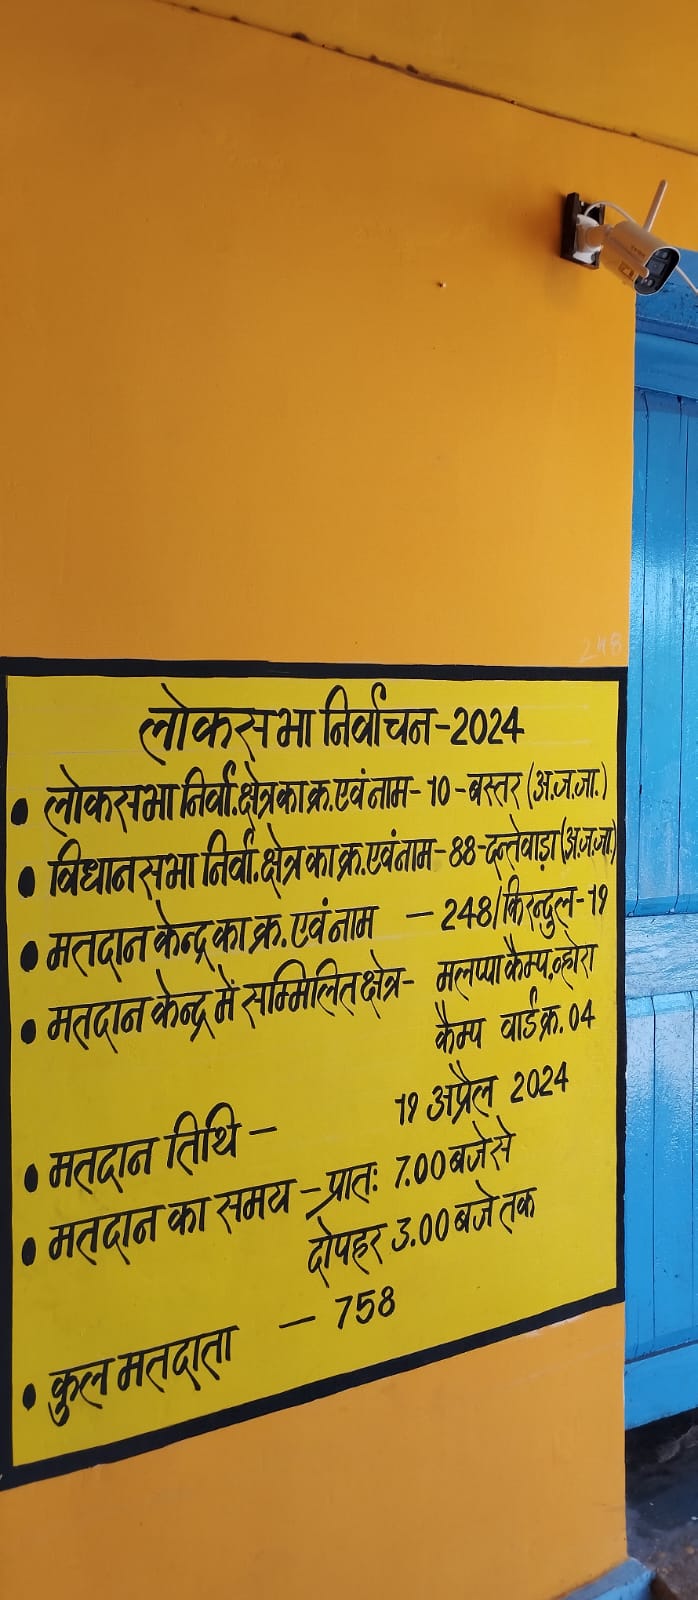 248
लोकसभा निर्वाचन-2024
• लोकसभा निर्वा.क्षेत्र का क्र.एवं नाम- 10 -बस्तर (अ.ज.जा.)
• विधानसभा निर्वा.क्षेत्र का क्र.एवं नाम-88-दन्तेवाड़ा (अ.ज.जा.)
• मतदान केन्द्र का क्र. एवं नाम - 248/किरन्दुल-19
• मतदान केन्द्र में सम्मिलित क्षेत्र- मलप्पा कैम्प,व्होरा
कैम्प वार्ड क्र. 04
• मतदान तिथि - 19 अप्रैल 2024
• मतदान का समय - प्रातः 7.00 बजे से
दोपहर 3.00 बजे तक
• कुल मतदाता - 758